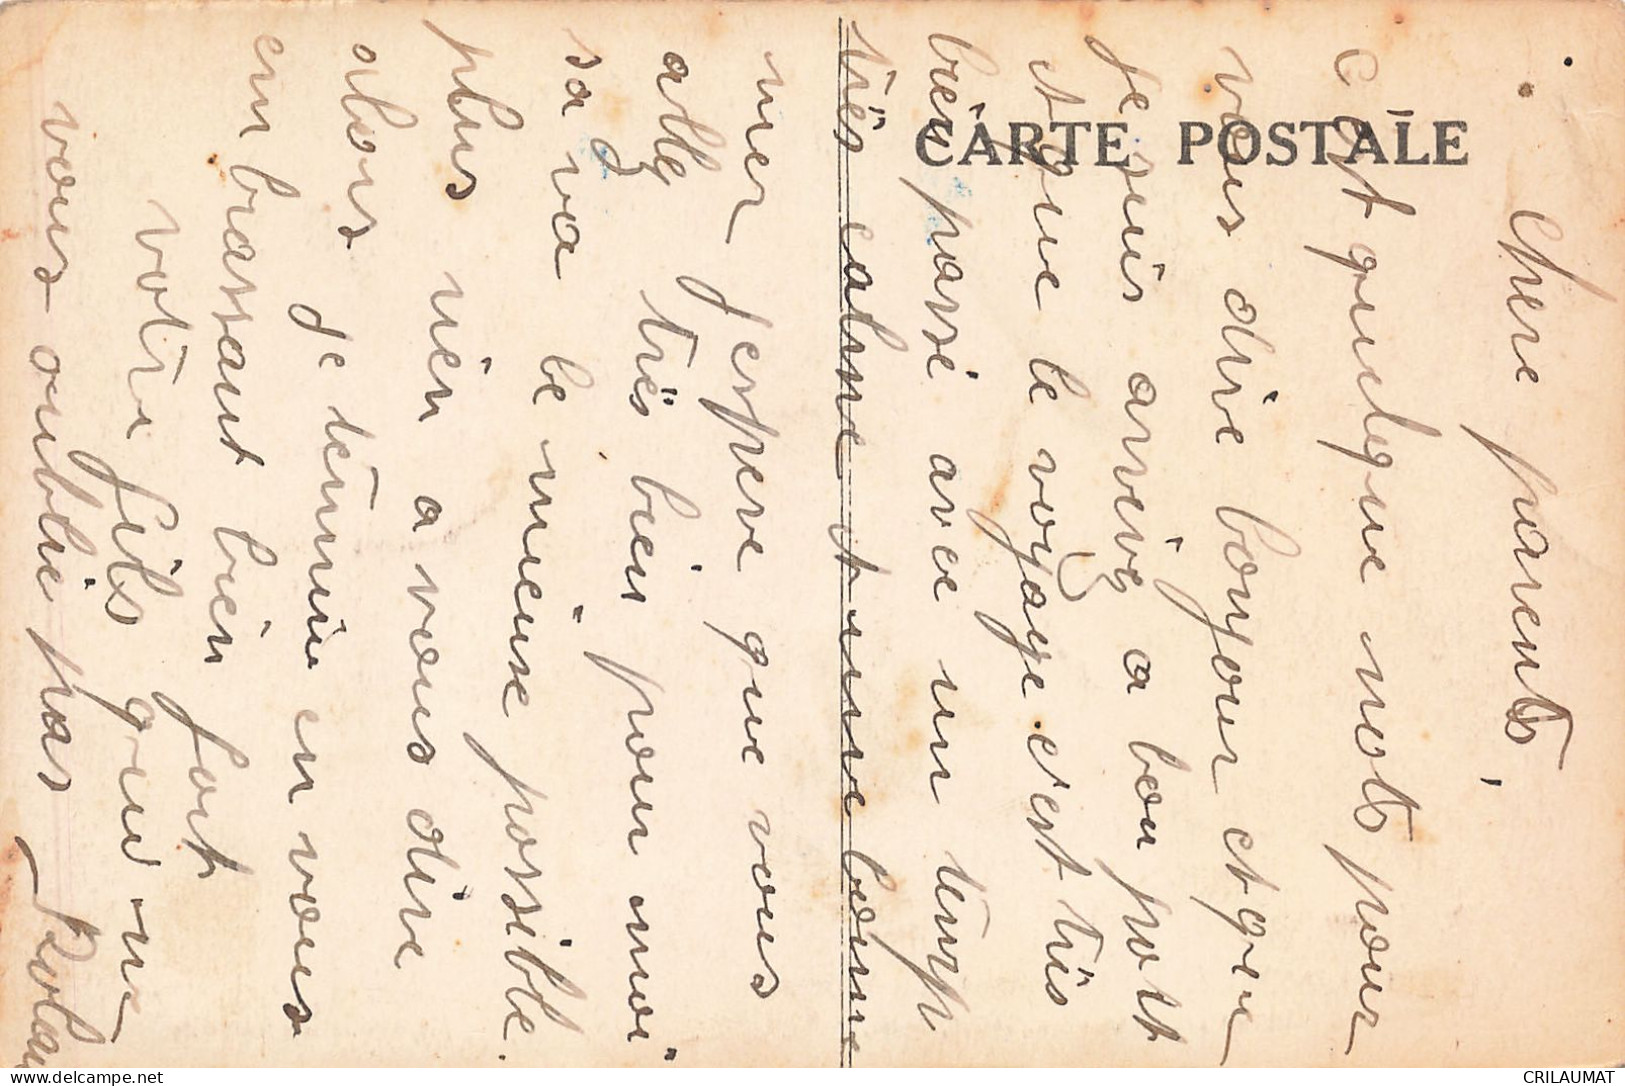 CARTE POSTALE
Chere parents,
C est quulque nots pour
vous dire bonjour et que
je suis arrivé a bon port
et que le voyage c'est tris
bien passé avec un temp
triës calme et une bonne
mer j'espere que vous
allez triës bien pour moi
sa va le mieuse possible.
plus rien a vous dire
alors je termine en vous
embrassant bien fort
votre fils que ne
vous oublie pas Rolan
CRILAUMAT